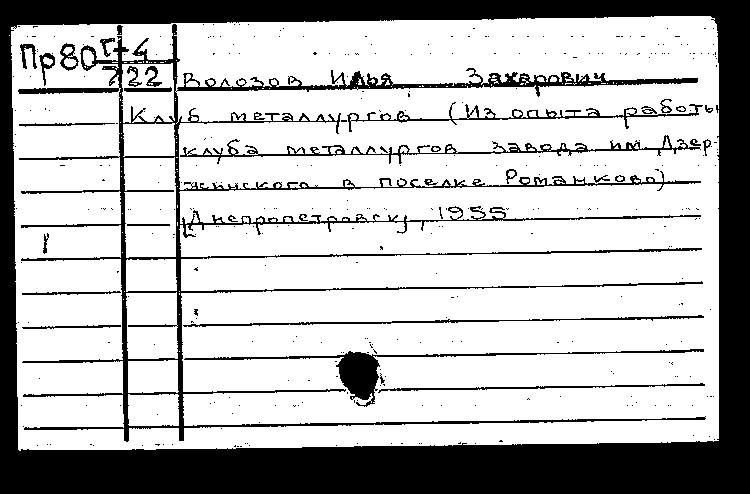 Пр80 Г-4
722 Волозов, Илья Захарович
Клуб металлургов (Из опыта работы
клуба металлургов завода им. Дзер-
жинского в поселке Романково)
[Днепропетровск], 1955
1